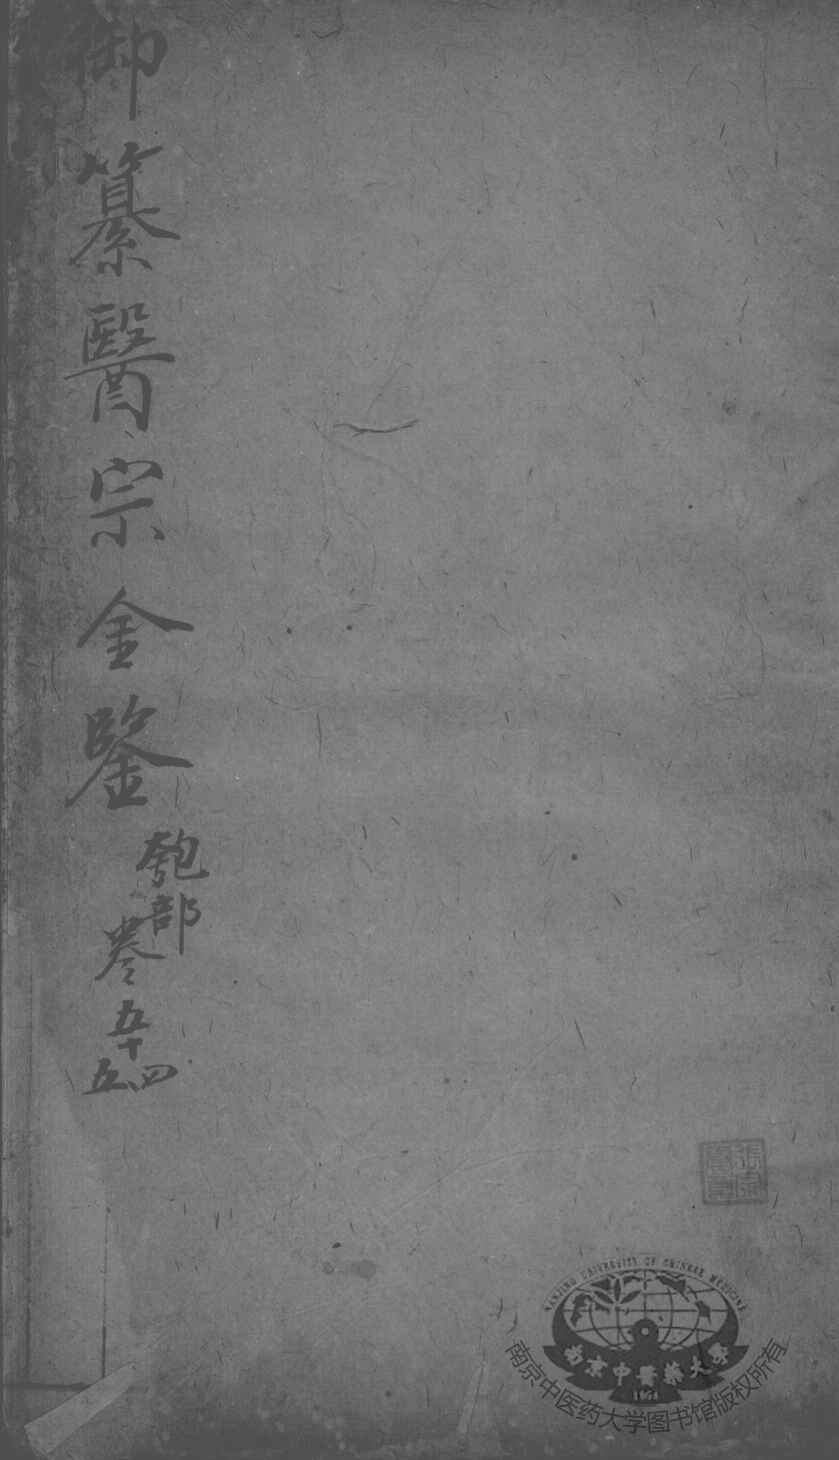 御纂醫宗金鑒
匏部
卷五十四
五
NANJING UNIVERSITY OF CHINESE MEDICINE
南京中醫藥大學
1954
南京中医药大学图书馆版权所有